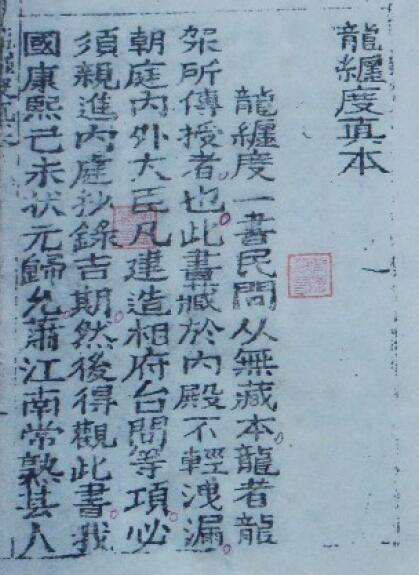 龍纏度真本
龍纏度一書民問从無藏本。龍者龍
架所傳授者。也。此書藏於內殿不輕洩漏。
朝庭內外大民凡建造相府台問等項。必
須親進內庭抄錄吉期。然後得觀此書。我
國康熙己未状元歸允。蕭江南常熟甚人